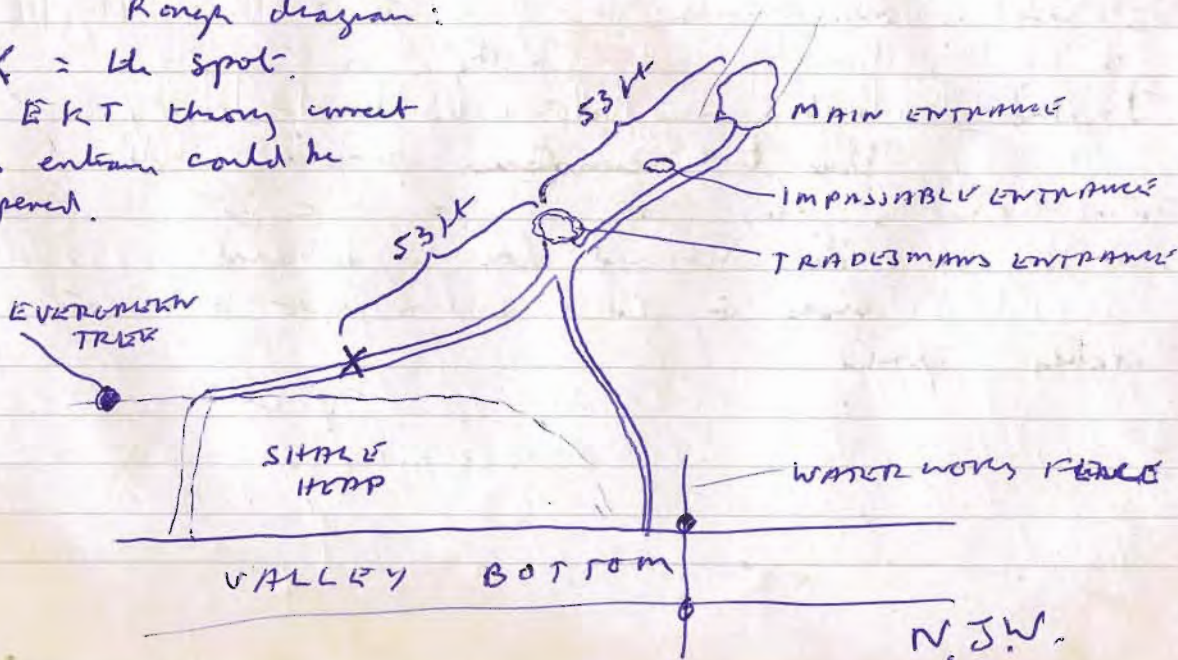 Rough diagram:
X = the spot.
EKT theory correct
entrance could be
opened.
53 ft
MAIN ENTRANCE
IMPASSABLE ENTRANCE
53 ft
TRADESMANS ENTRANCE
EVERGREEN
TREE
X
SHALE
HEAP
WATER WORKS FENCE
VALLEY BOTTOM
N.J.W.